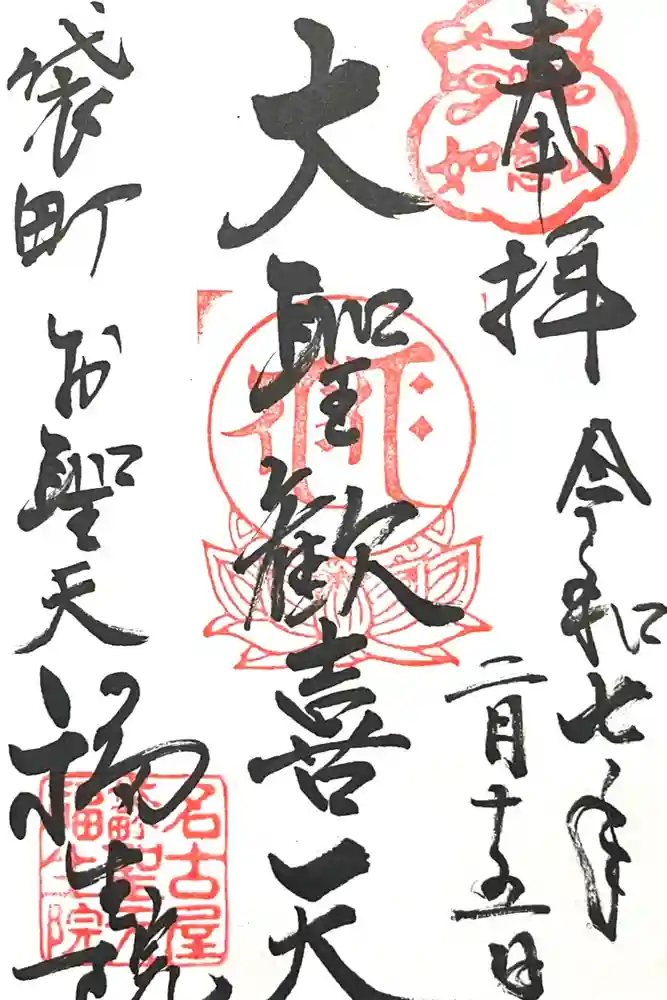 奉拝
令和七年
二月十五日
大聖歓喜天
袋町お聖天
福生院
如意山
名古屋
袋町聖天
福生院